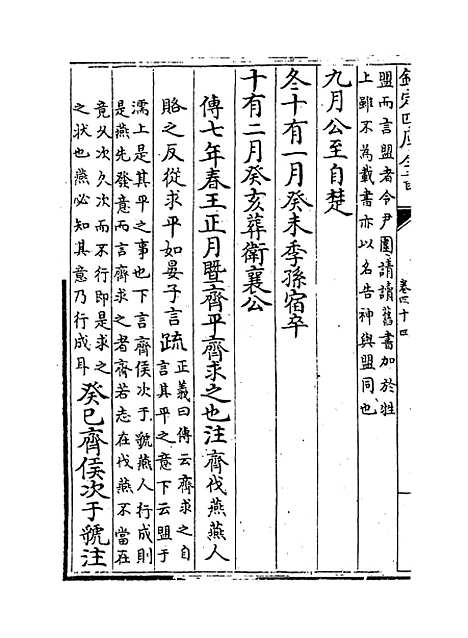 欽定四庫全書
卷四十四
盟而言盟者令尹圍請讀舊書加於牲
上雖不為載書亦以名告神與盟同也
九月公至自楚
冬十有一月癸未季孫宿卒
十有二月癸亥葬衛襄公
傳七年春王正月暨齊平齊求之也注齊伐燕燕人
賂之反從求平如晏子言疏正義曰傳云齊求之自
言其平之意下云盟于
濡上是其平之事也下言齊侯次于虢燕人行成則
是燕先發意而言齊求之者齊若志在伐燕不當在
竟久次久次而不行即是求之
之狀也燕必知其意乃行成耳
癸巳齊侯次于虢注